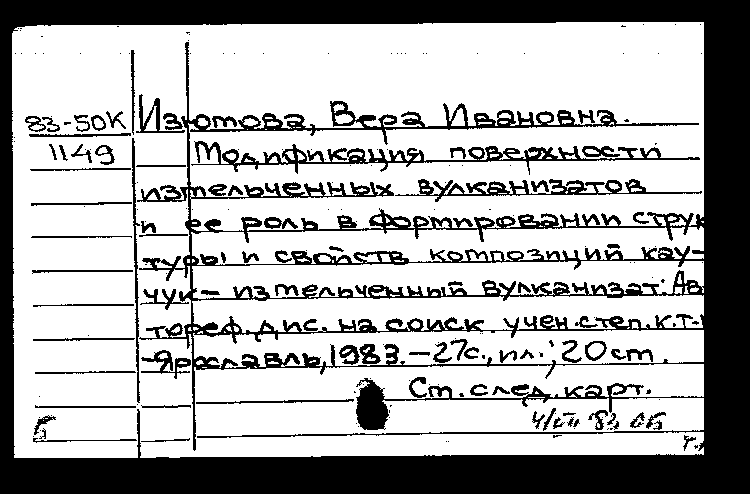 83-50К Изютова, Вера Ивановна.
1149 Модификация поверхности
измельченных вулканизатов
и ее роль в формировании струк
туры и свойств композиций кау-
чук - измельченный вулканизат: Ав
тореф. дис. на соиск. учен. степ. к.т.н
-Ярославль, 1983. - 27с., ил.; 20 см.
Ст. след. карт.
Б